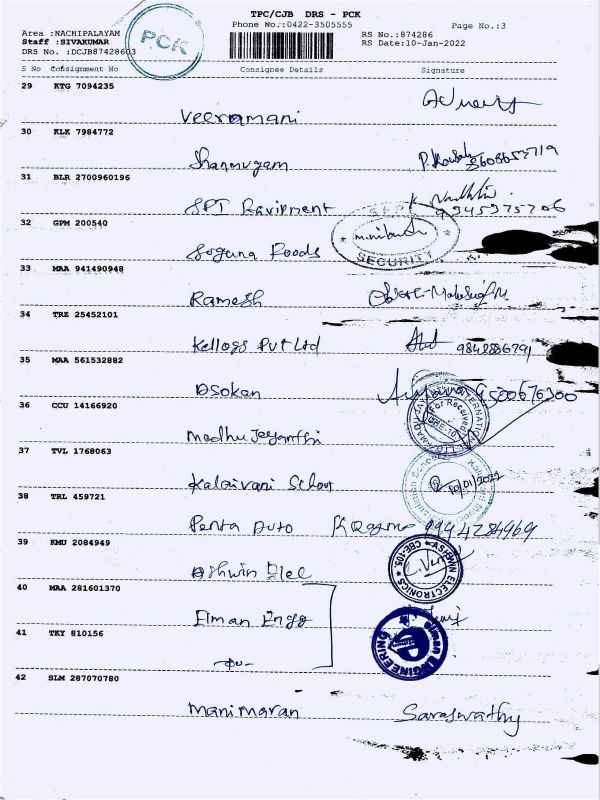 TPC/CJB DRS - PCK
Phone No.:0422-3505555
Page No.:3
Area :NACHIPALAYAM
Staff :SIVAKUMAR
DRS No. :DCJB87428603
PCK
RS No.:874286
RS Date:10-Jan-2022
S No Consignment No Consignee Details Signature
29 KTG 7094235
Veeramani
30 KLK 7984772
Shanmugam
31 BLR 2700960196
32 GPM 200540
SECURITY
Foods
33 MAA 941490948
Ramesh
34 TRZ 25452101
Kellogs Pvt Ltd
35 MAA 561532882
Asokan
36 CCU 14166920
Madhu Jeyanthi
37 TVL 1768063
Kalaivani School
10/01/2022
38 TRL 459721
Penta Auto 9994284969
39 KMU 2084949
Ashwin Elec
ASHWIN ELECTRONICS CBE-105.
40 MAA 281601370
Elman Engg
41 TKY 810156
-do-
elman ENGINEERING
42 SLM 287070780
Manimaran Saraswathy